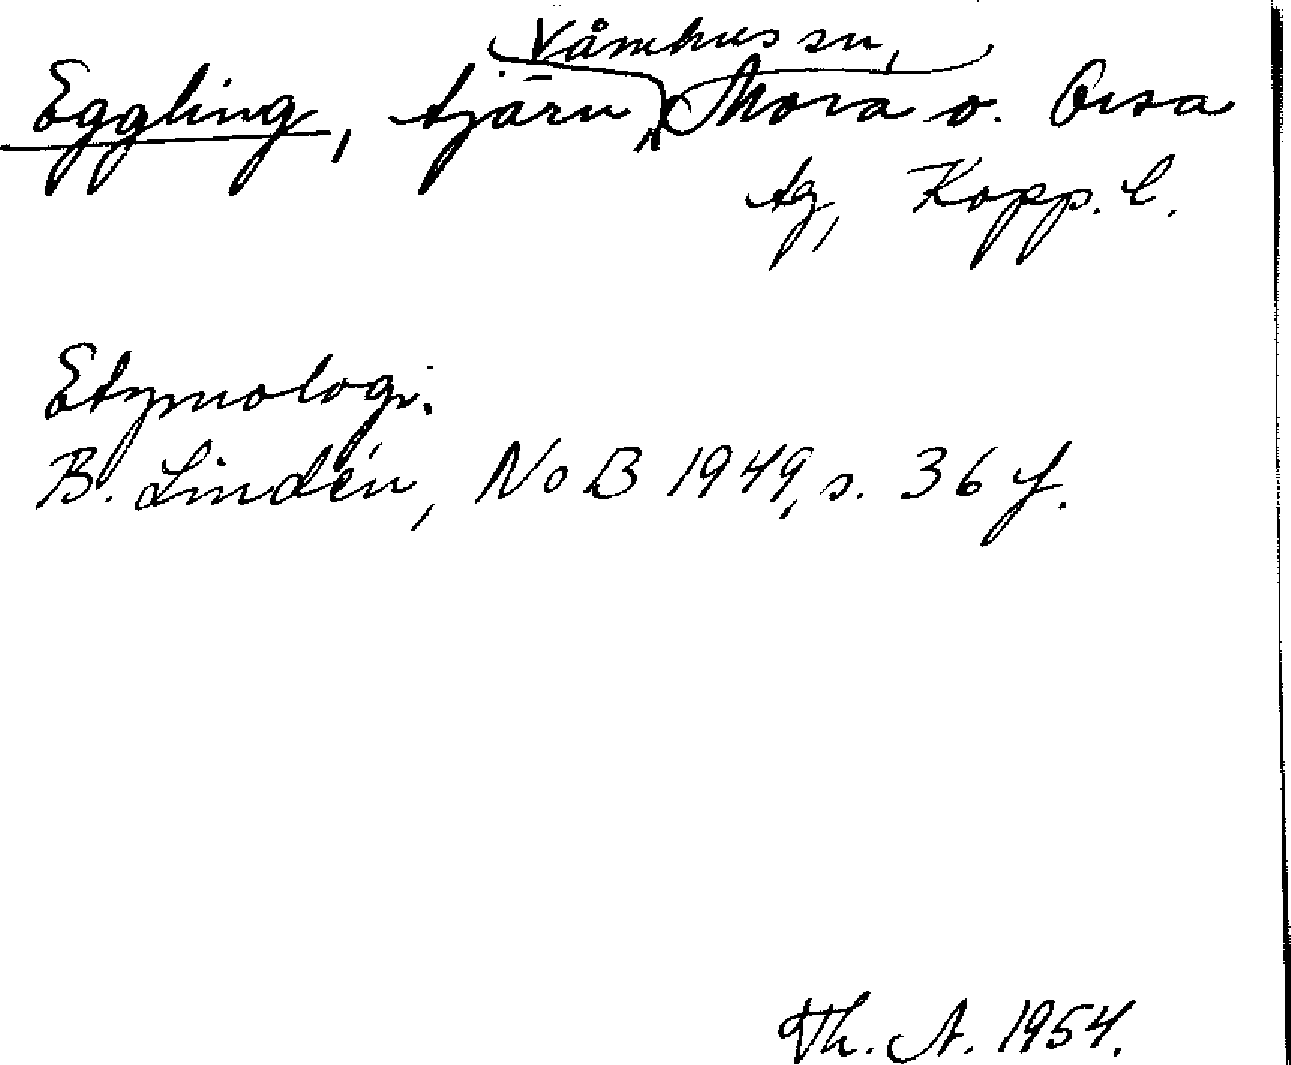 Våmhus sn,
Eggling, tjärn, Mora o. Orsa
tg, Kopp. l.
Etymologi.
B. Lindén, NoB 1949, s. 36 f.
Th. A. 1954.